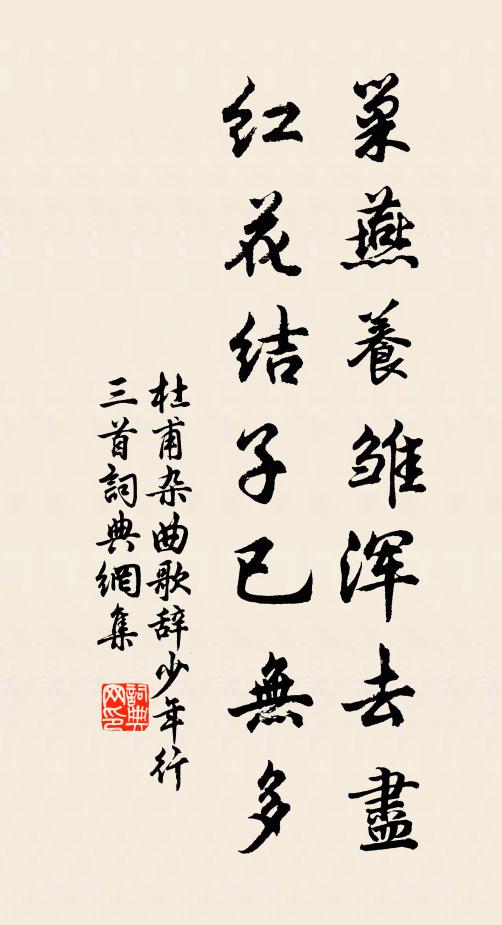 巢燕養雏浑去盡
红花结子已無多
杜甫杂曲歌辞少年行
三首詞典網集
詞典网印